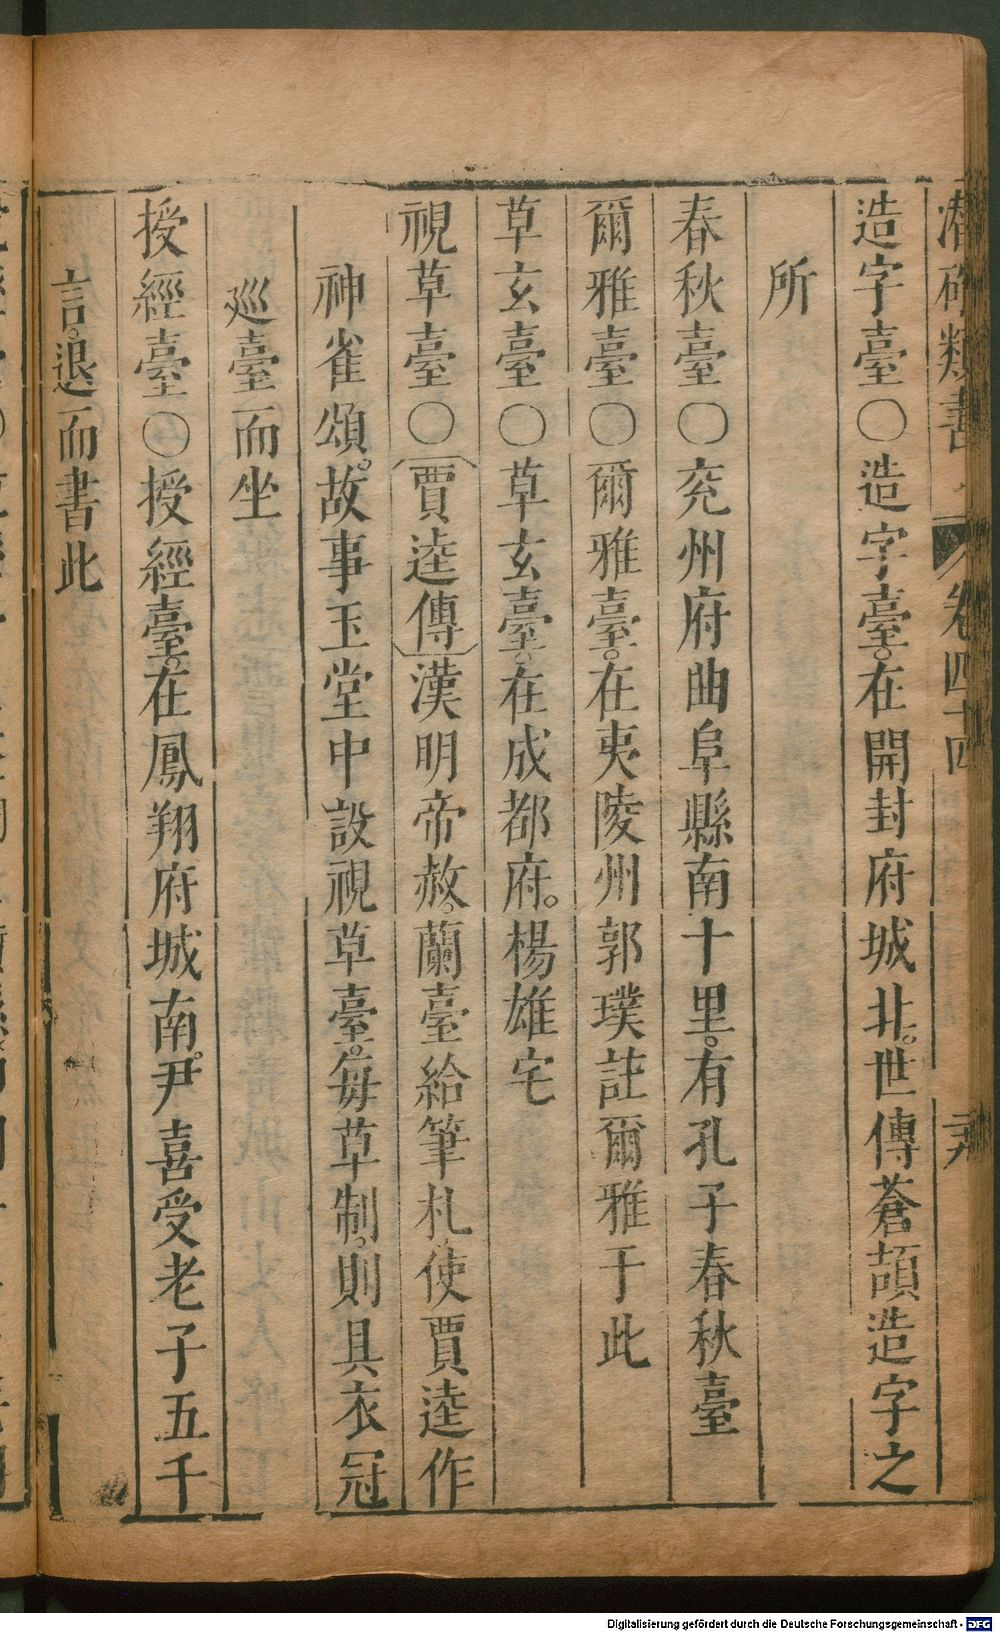 潛確類書 卷四十四
造字臺〇造字臺。在開封府城北。世傳蒼頡造字之
所
春秋臺〇兗州府曲阜縣南十里。有孔子春秋臺
爾雅臺〇爾雅臺。在夷陵州郭璞註爾雅于此
草玄臺〇草玄臺。在成都府。楊雄宅
視草臺〇〔賈逵傳〕漢明帝赦。蘭臺給筆札。使賈逵作
神雀頌。故事玉堂中設視草臺。每草制。則具衣冠
巡臺而坐
授經臺〇授經臺。在鳳翔府城南。尹喜受老子五千
言。退而書此
Digitalisierung gefördert durch die Deutsche Forschungsgemeinschaft - DFG